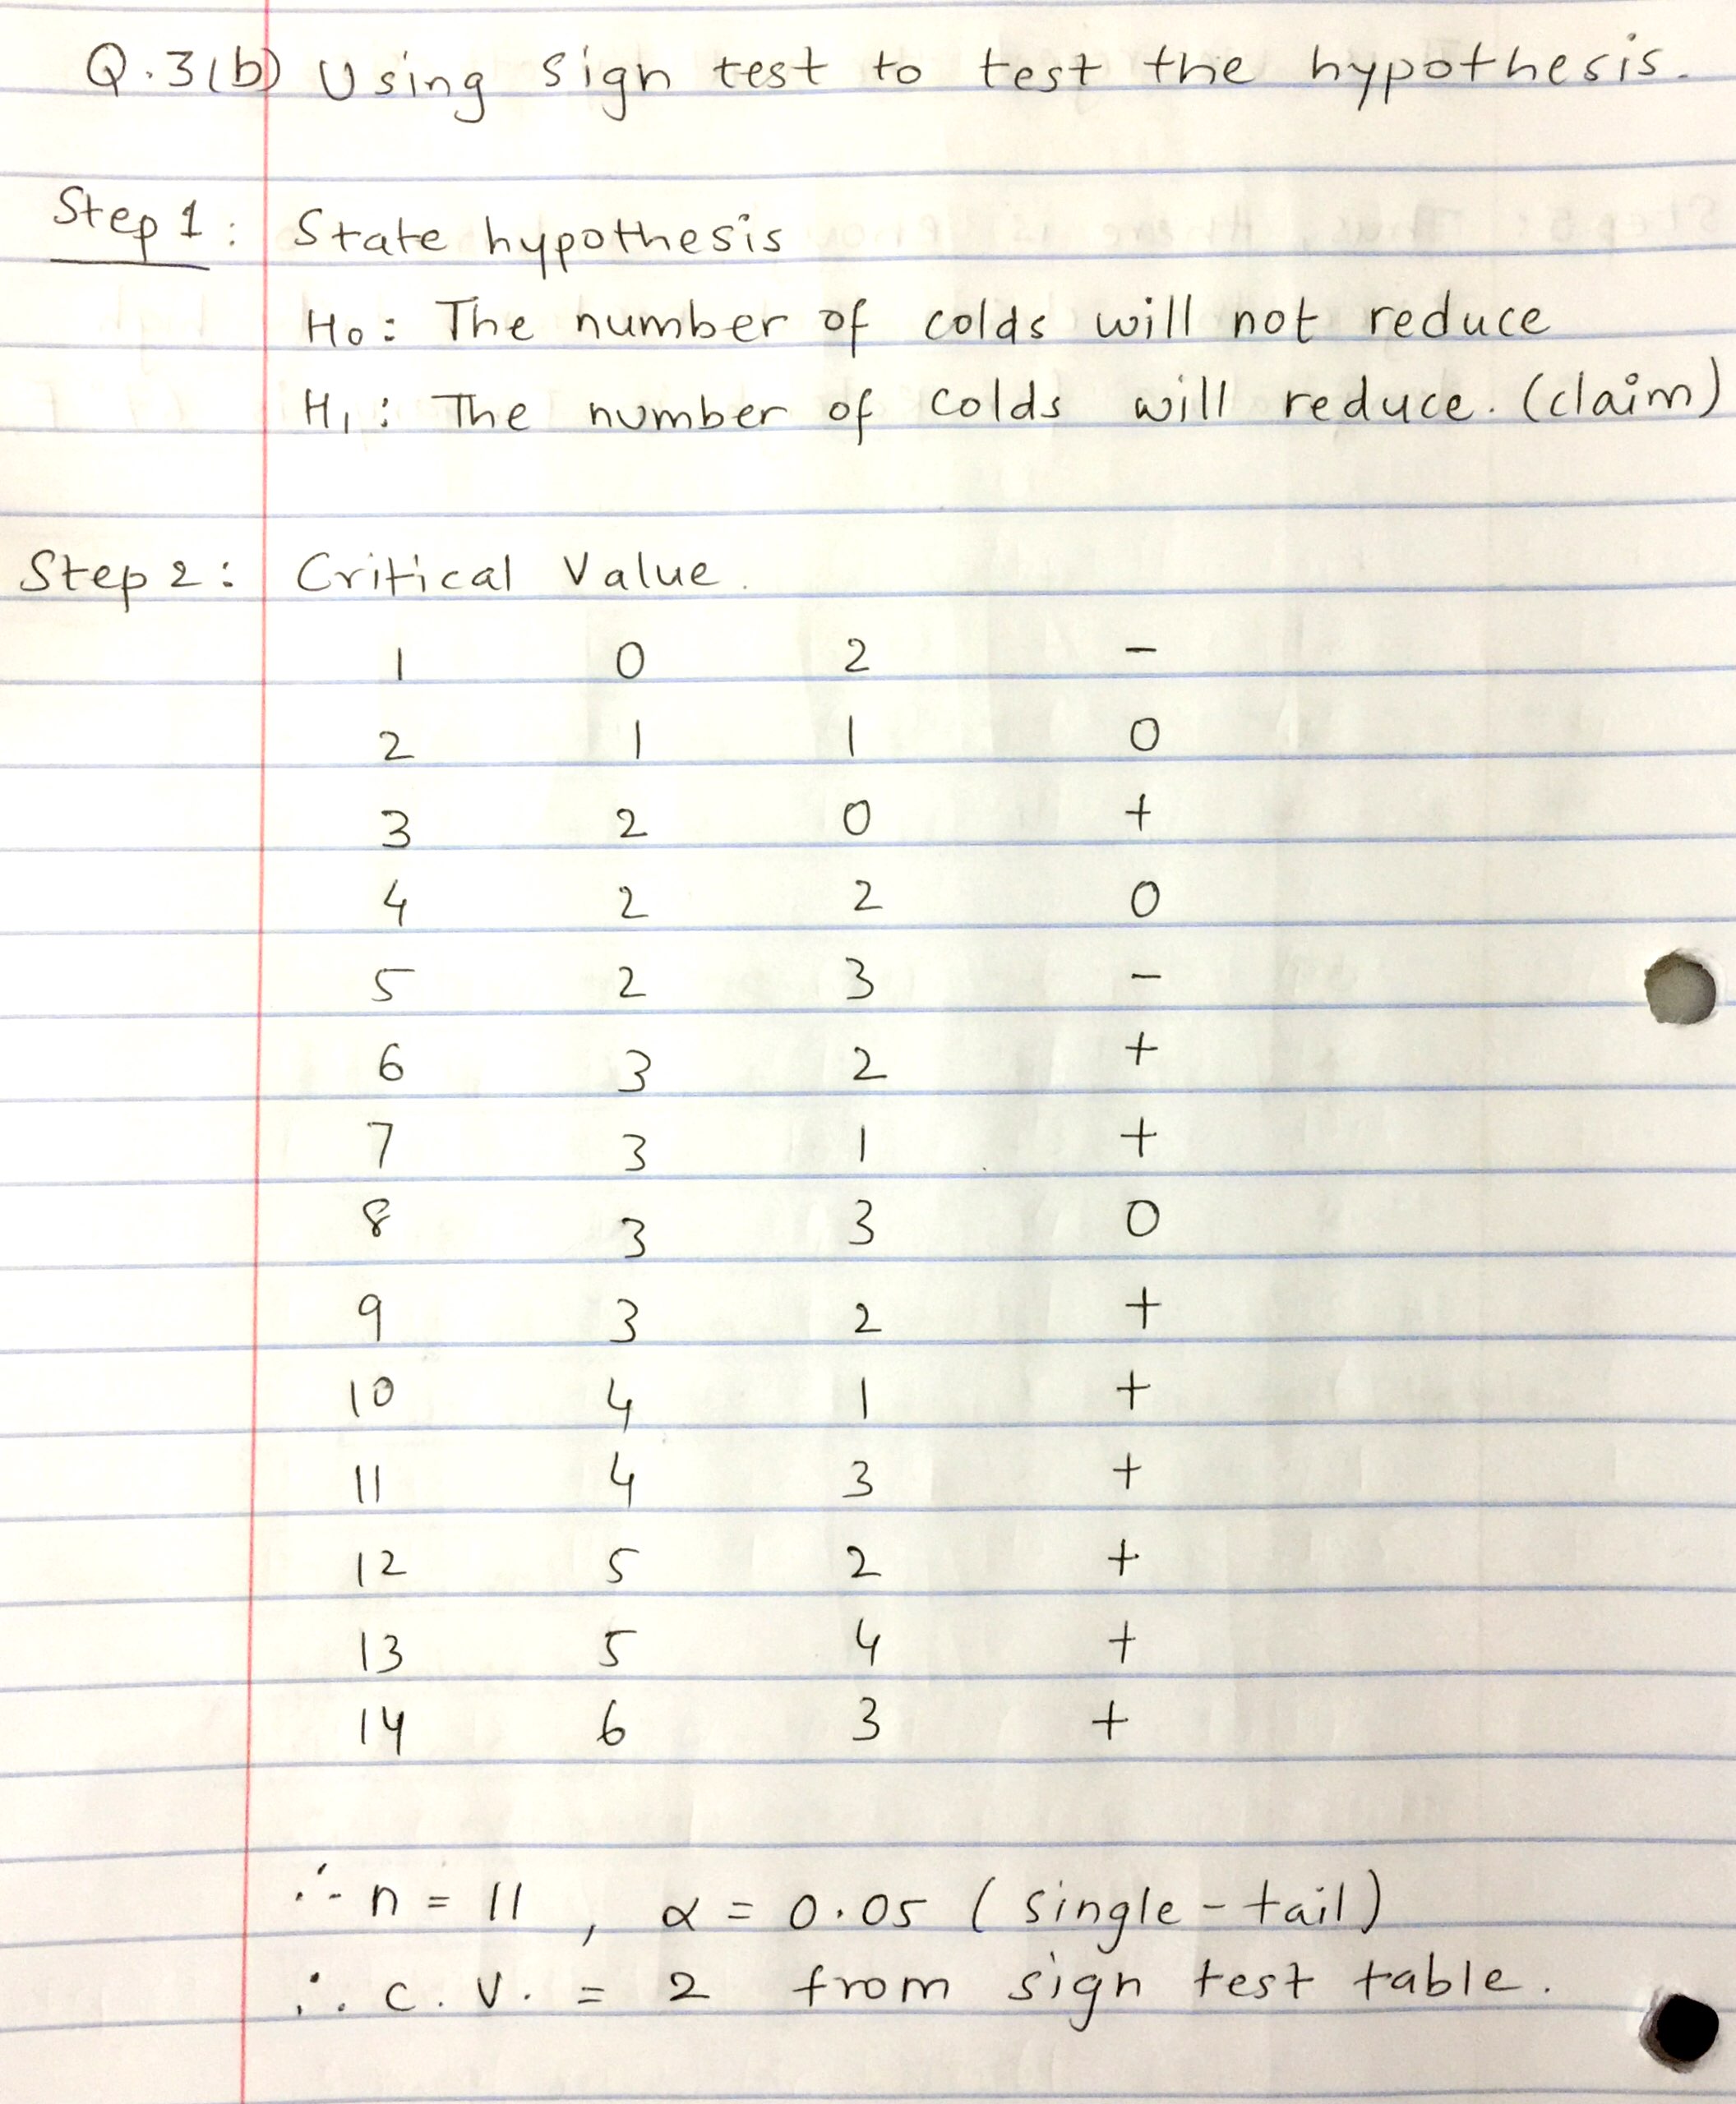 Q.3(b) Using sign test to test the hypothesis.
Step 1: State hypothesis
H0: The number of colds will not reduce
H1: The number of colds will reduce. (claim)
Step 2: Critical Value.
1 0 2 -
2 1 1 0
3 2 0 +
4 2 2 0
5 2 3 -
6 3 2 +
7 3 1 +
8 3 3 0
9 3 2 +
10 4 1 +
11 4 3 +
12 5 2 +
13 5 4 +
14 6 3 +
∴ n = 11, α = 0.05 (single-tail)
∴ C.V. = 2 from sign test table.